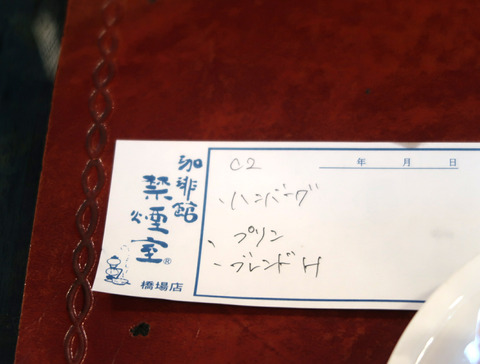 珈琲館
禁煙室®
橋場店
C2
年 月 日
、ハンバーグ
、プリン
、ブレンドH